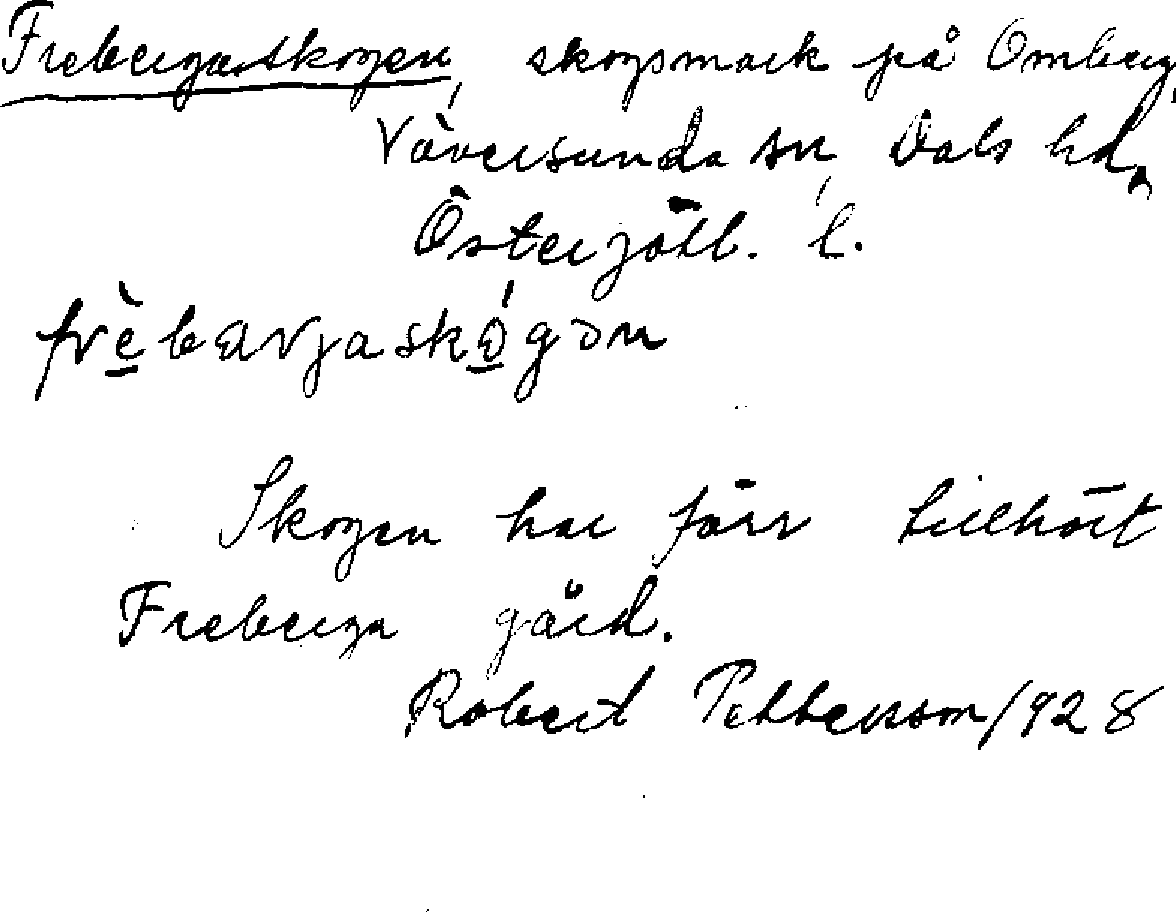 Frebergaskogen, skogsmark på Omberg,
Väversunda sn, Dals hd,
Östergötl. l.
frèbærjaskógən
Skogen har förr tillhört
Freberga gård.
Robert Pettersson 1928